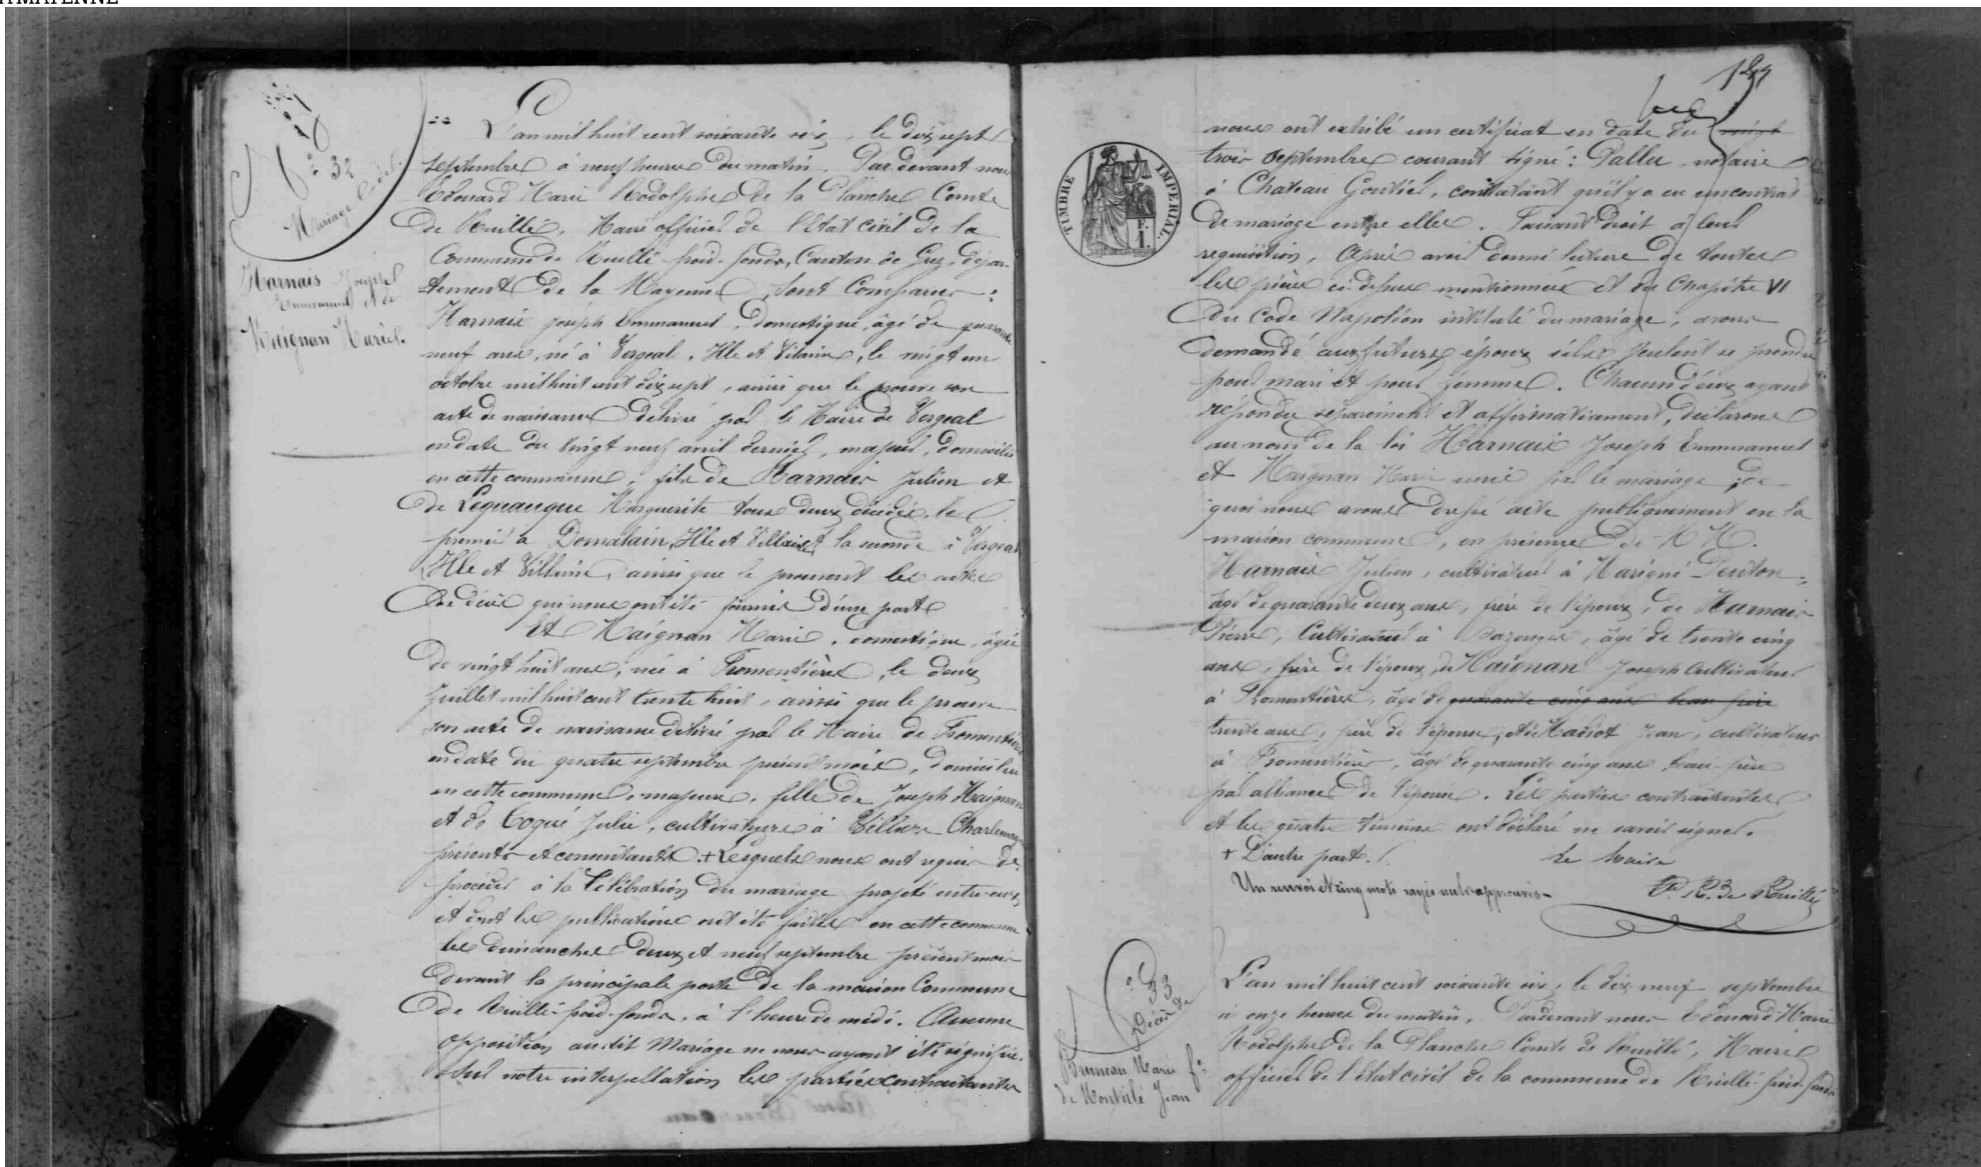 A MAYENNE
N° 32
Mariage Cadet
Harnais Joseph
Emmanuel & de
Maignan Marie.
L'an mil huit cent soixante six, le dix sept
septembre à neuf heures du matin. Par devant nous
Edouard Marie Rodolphe De la Planche Comte
De Ruillé, Maire officier de l'Etat civil de la
Commune de Ruillé froid-fonds, Canton de Grez, dépar-
tement De la Mayenne, sont Comparus :
Harnais Joseph Emmanuel, domestique, âgé de quarante
neuf ans, né à Vergeal, Ille et Vilaine, le vingt un
octobre mil huit cent dix sept, ainsi que le prouve son
acte de naissance délivré par le Maire de Vergeal
en date du vingt neuf avril dernier, majeur, domicilié
en cette commune, fils de Harnais Julien et
de Marguerite tous deux décédés, le
premier à Domalain, Ille et Villaine & la seconde à Vergeal
Ille et Villaine, ainsi que le prouvent les actes
De décès qui nous ont été fournis d'une part
Et Maignan Marie, domestique, âgée
De vingt huit ans, née à Fromentières, le deux
Juillet mil huit cent trente huit, ainsi que le prouve
son acte de naissance délivré par le Maire de Fromentières
en date du quatre septembre présent mois, domiciliée
en cette commune, majeure, fille de Joseph Maignan
et de Coqué Julie, cultivateurs à Villiers Charlemagne
présents et consentants + Lesquels nous ont requis de
procéder à la Célébration du mariage projeté entre eux
et dont les publications ont été faites en cette commune
les dimanches deux et neuf septembre présent mois
devant la principale porte de la maison Commune
De Ruillé-froid-fonds, à l'heure de midi. Aucune
opposition audit Mariage ne nous ayant été signifiée.
Sur notre interpellation les parties contractantes
nous ont exhibé un certificat en date du vingt
trois septembre courant signé : Pallu, notaire
à Chateau Gontier, constatant qu'il y a eu un contrat
De mariage entre elles. Faisant droit à leur
requisition, Après avoir donné lecture de toutes
les pièces ci-dessus mentionnées et du Chapitre VI
Du Code Napoléon intitulé du mariage, avons
demandé aux futurs époux s'ils veulent se prendre
pour mari et pour femme. Chacun d'eux ayant
répondu séparément et affirmativement, déclarons
au nom de la loi Harnais Joseph Emmanuel
et Maignan Marie unis par le mariage ; de
quoi nous avons dressé acte publiquement en la
maison commune, en présence de M M.
Harnais Julien, cultivateur à Marigné-Peuton,
âgé de quarante deux ans, frère de l'époux, de Harnais
Pierre, Cultivateur à Bazouges, âgé de trente cinq
ans, frère de l'époux, de Maignan Joseph Cultivateur
à Fromentières, âgé de quarante cinq ans beau frère
trente ans, frère de l'épouse, et de Madiot Jean, cultivateur
à Fromentières, âgé de quarante cinq ans, beau-frère
par alliance de l'épouse. Les parties contractantes
et les quatre témoins ont déclaré ne savoir signer.
+ D'autre part.
Le Maire
Un renvoi et cinq mots rayés nuls approuvés
De Ruillé
TIMBRE IMPERIAL.
F.I.
N° 33
Décès de
Bruneau Marie fe
de Montulé Jean
L'an mil huit cent soixante six, le dix neuf septembre
à onze heures du matin, Pardevant nous Edouard Marie
Rodolphe De la Planche Comte de Ruillé, Maire
officier de l'Etat civil de la commune de Ruillé-froid-fonds